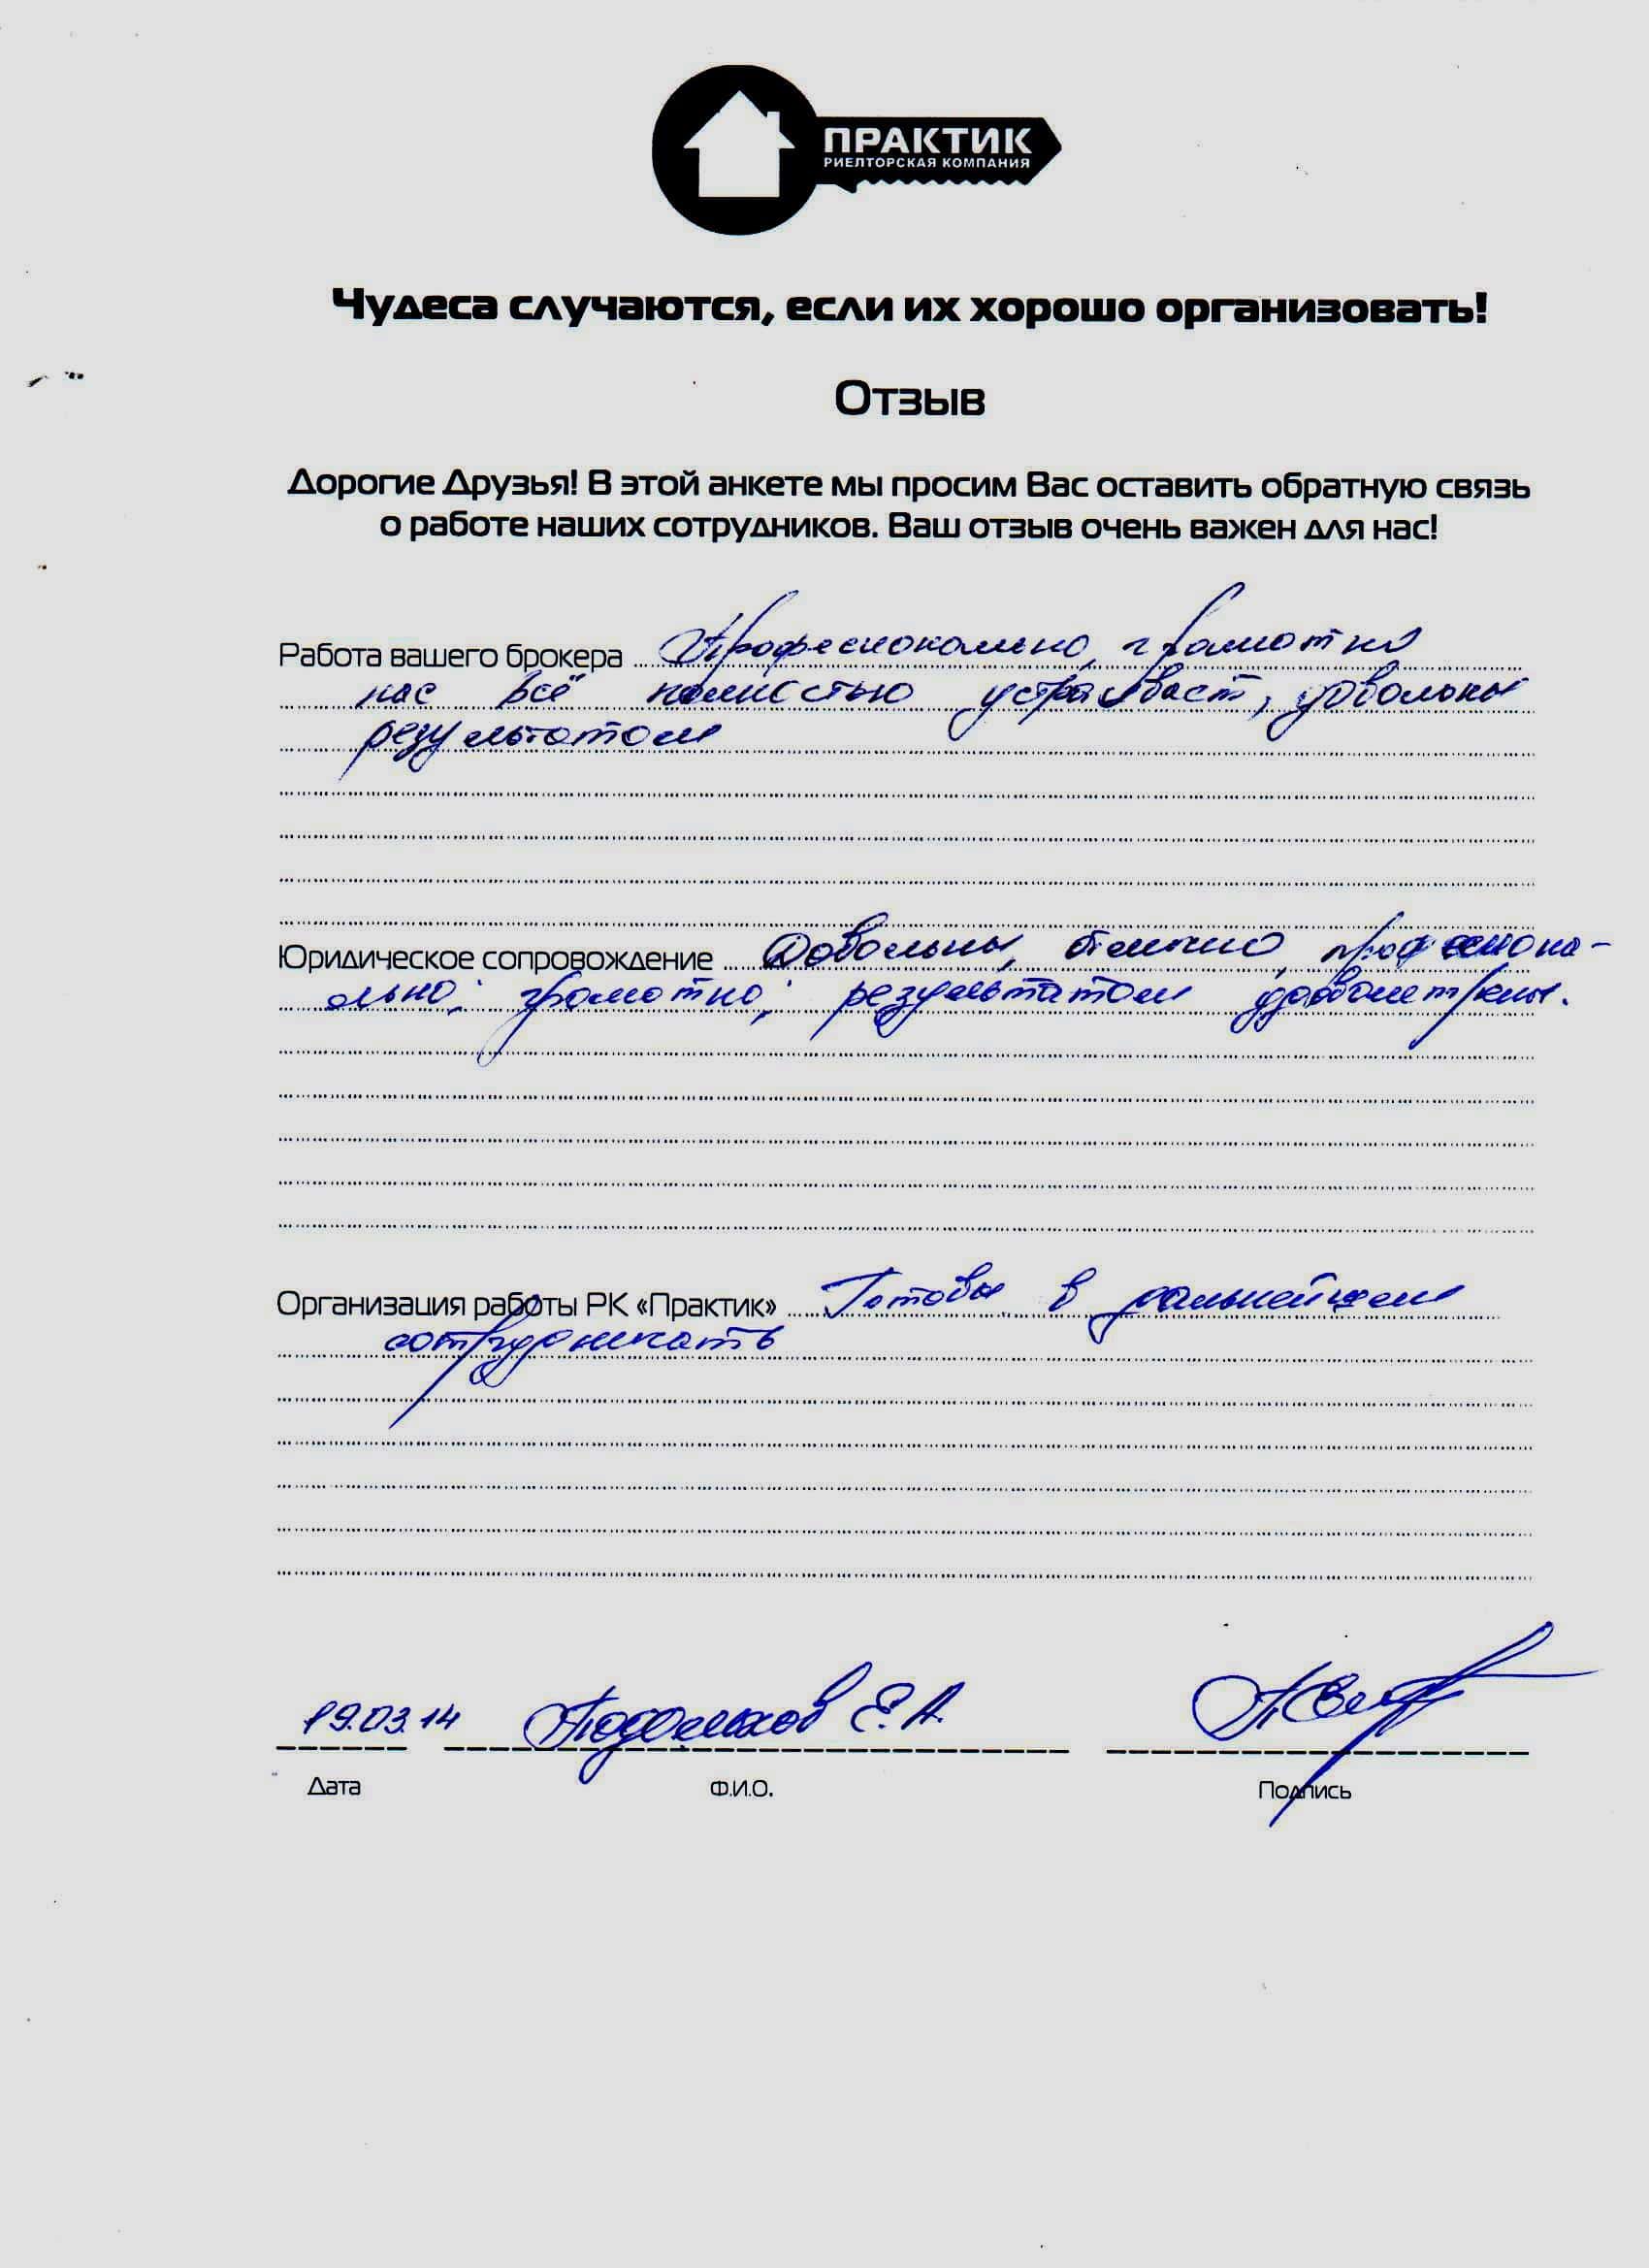 ПРАКТИК
РИЕЛТОРСКАЯ КОМПАНИЯ
Чудеса случаются, если их хорошо организовать!
Отзыв
Дорогие Друзья! В этой анкете мы просим Вас оставить обратную связь
о работе наших сотрудников. Ваш отзыв очень важен для нас!
Работа вашего брокера Професионально, грамотно
нас всё полностью устраивает, довольны
результатом
Юридическое сопровождение Довольны, отлично, професиона-
льно; грамотно; результатом
Организация работы РК «Практик» Готовы в дальнейшем
сотрудничать
19.03.14 Подольяков Е.А.
Дата Ф.И.О. Подпись